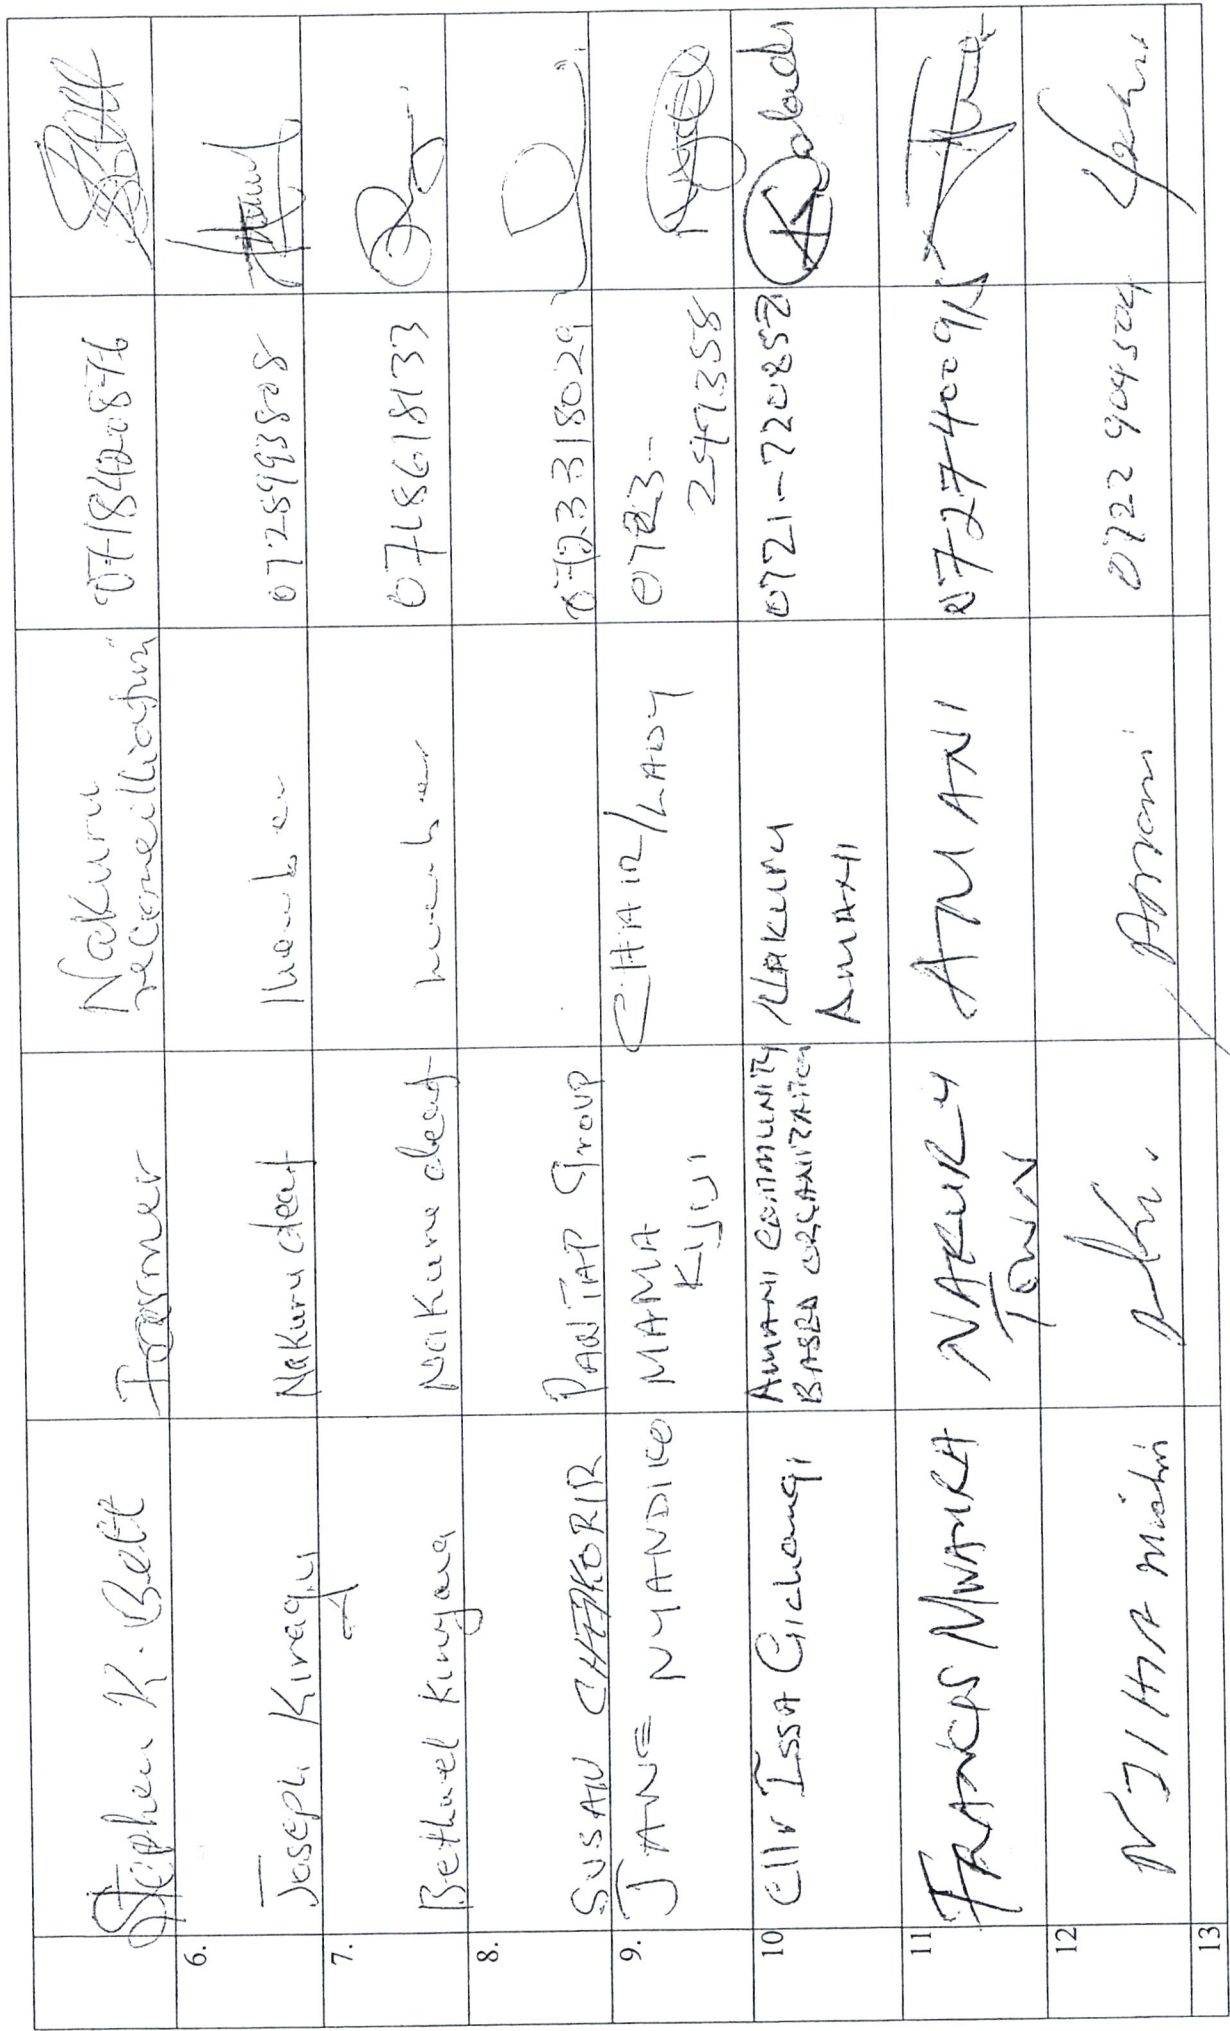 Stephen K. Bett Farmer Nakuru reconciliation 0718420876
6. Joseph Kiragu Nakuru deaf Member 0728993808
7. Bethuel Kinyana Nakuru deaf member 0718618133
8. SUSAN CHEPKORIR PAWTAP Group 0723318029
9. JANE NYANDIKO MAMA KIJIJI CHAIR/LADY 249358
10 Cllr ISSA Gichangi AMANI COMMUNITY BASED ORGANIZATION NAKURU AMANI 0721-720852
11 FRANCIS MWAURA NAKURU TOWN AMANI 0727400915
12 Amani 0722 904504
13